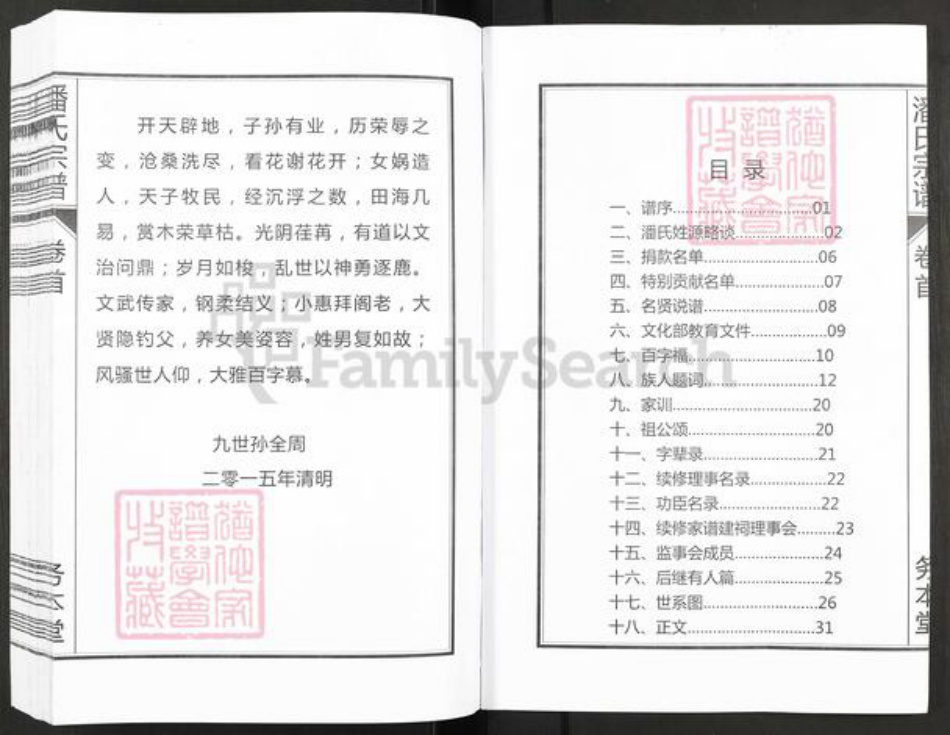 潘氏宗谱
卷首
务本堂
开天辟地，子孙有业，历荣辱之
变，沧桑洗尽，看花谢花开；女娲造
人，天子牧民，经沉浮之数，田海几
易，赏木荣草枯。光阴荏苒，有道以文
治问鼎；岁月如梭，乱世以神勇逐鹿。
文武传家，钢柔结义；小惠拜阁老，大
贤隐钓父，养女美姿容，姓男复如故；
风骚世人仰，大雅百字慕。
九世孙全周
二零一五年清明
猶他家
譜學會
收藏
FamilySearch
目录
一、谱序...............................01
二、潘氏姓源略谈...................02
三、捐款名单.........................06
四、特别贡献名单...................07
五、名贤说谱.........................08
六、文化部教育文件................09
七、百字福............................10
八、族人题词.........................12
九、家训...............................20
十、祖公颂............................20
十一、字辈录.........................21
十二、续修理事名录................22
十三、功臣名录......................22
十四、续修家谱建祠理事会.........23
十五、监事会成员...................24
十六、后继有人篇...................25
十七、世系图.........................26
十八、正文............................31
猶他家
譜學會
收藏
潘氏宗谱
卷首
务本堂